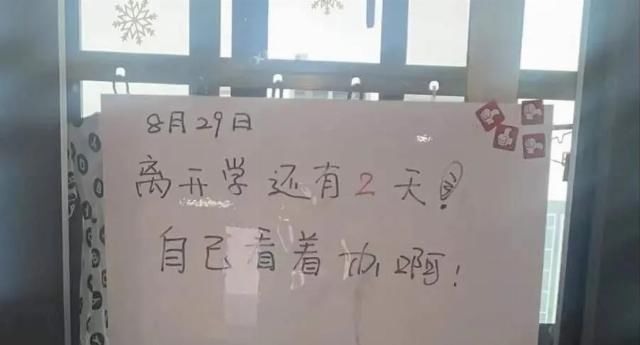 8月29日
离开学还有2天!
自己看着办啊!